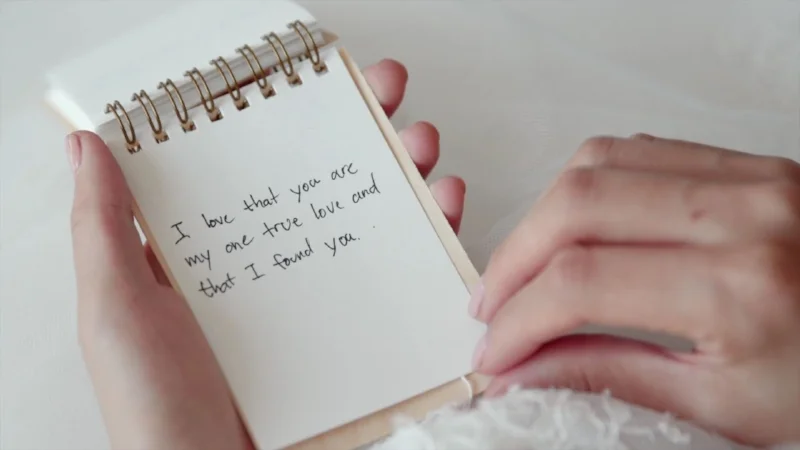 I love that you are
my one true love and
that I found you.